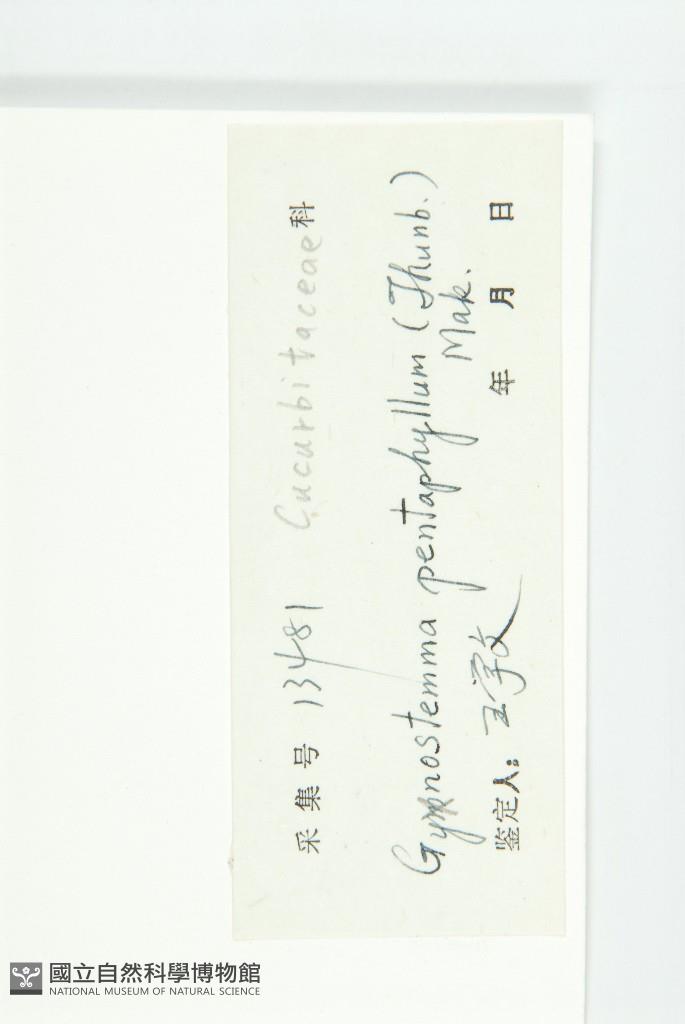 采集号 13481 Cucurbitaceae科
Gynostemma pentaphyllum (Thunb.)
Mak.
鉴定人: 王学文
年 月 日
國立自然科學博物館
NATIONAL MUSEUM OF NATURAL SCIENCE